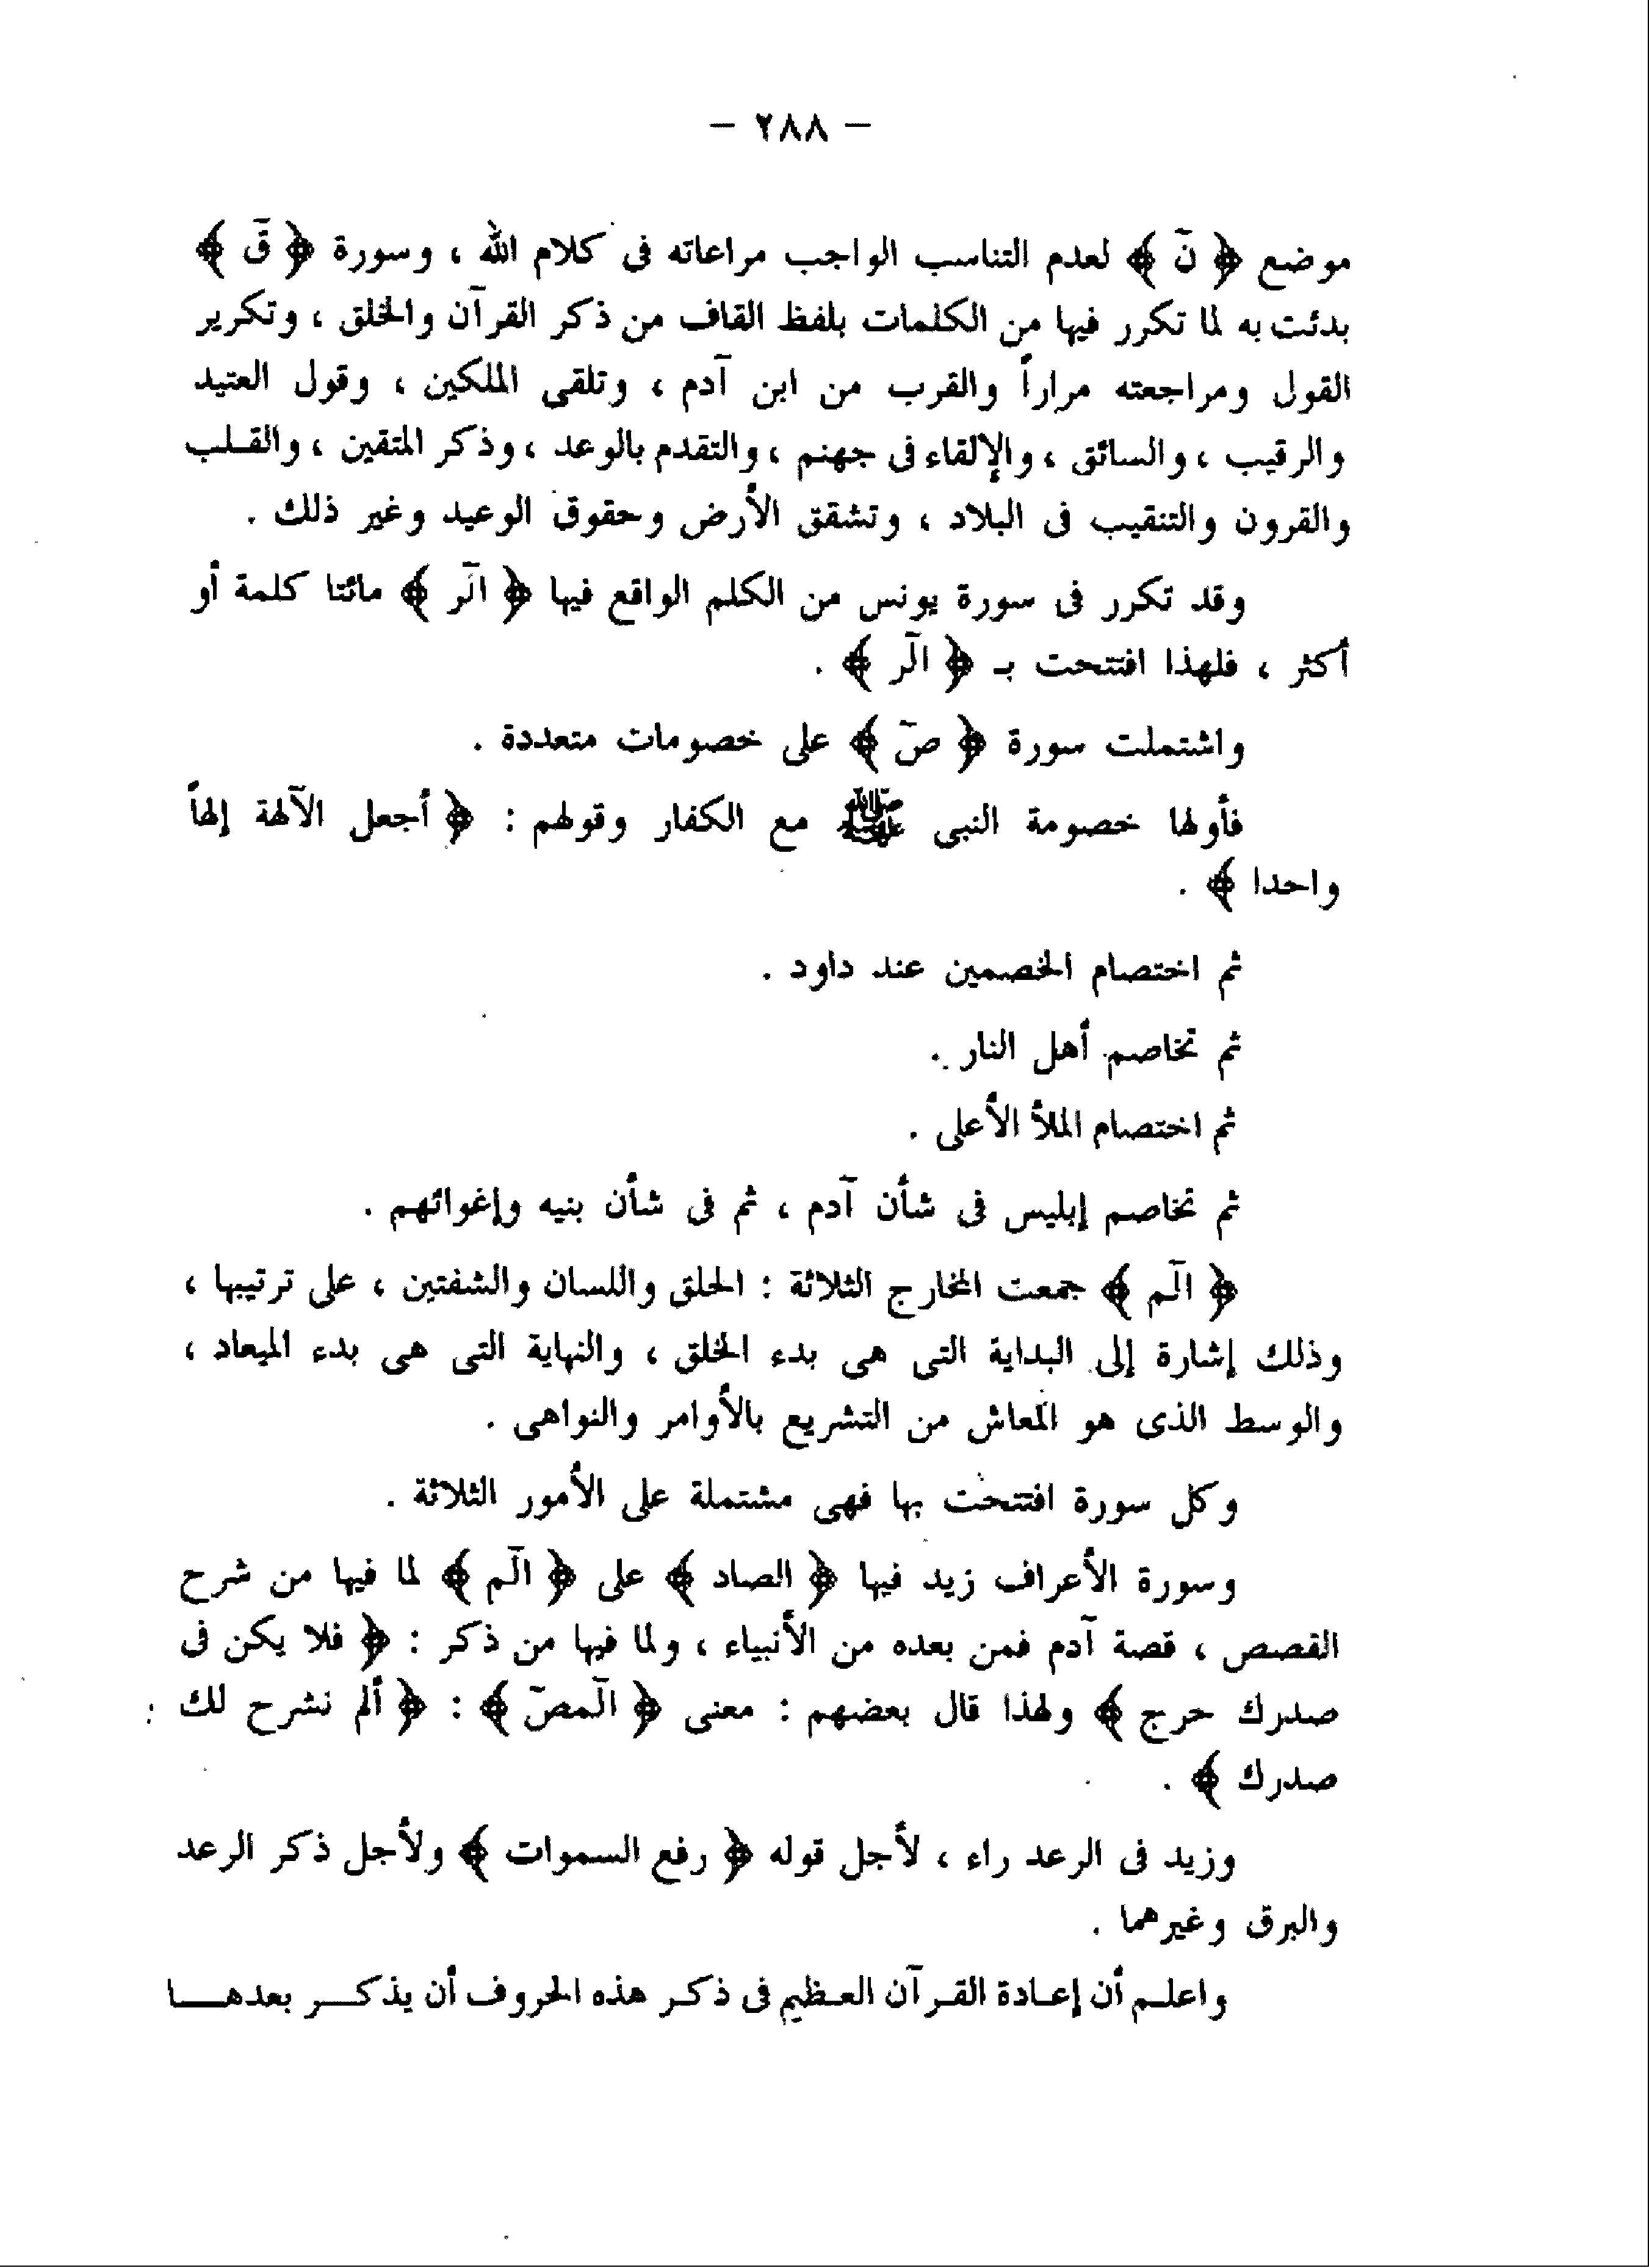 – ٢٨٨ –
موضع ﴿ نَ ﴾ لعدم التناسب الواجب مراعاته فى كلام الله ، وسورة ﴿ قَ ﴾
بدئت به لما تكرر فيها من الكلمات بلفظ القاف من ذكر القرآن والخلق ، وتكرير
القول ومراجعته مراراً والقرب من ابن آدم ، وتلقى الملكين ، وقول العتيد
والرقيب ، والسائق ، والإلقاء فى جهنم ، والتقدم بالوعد ، وذكر المتقين ، والقـلب
والقرون والتنقيب فى البلاد ، وتشقق الأرض وحقوق الوعيد وغير ذلك .
وقد تكرر فى سورة يونس من الكلم الواقع فيها ﴿ الٓر ﴾ مائتا كلمة أو
أكثر ، فلهذا افتتحت بـ ﴿ الٓر ﴾ .
واشتملت سورة ﴿ صٓ ﴾ على خصومات متعددة .
فأولها خصومة النبى ﷺ مع الكفار وقولهم : ﴿ أجعل الآلهة إلهاً
واحدا ﴾ .
ثم اختصام الخصمين عند داود .
ثم تخاصم أهل النار .
ثم اختصام الملأ الأعلى .
ثم تخاصم إبليس فى شأن آدم ، ثم فى شأن بنيه وإغوائهم .
﴿ الٓم ﴾ جمعت المخارج الثلاثة : الحلق واللسان والشفتين ، على ترتيبها ،
وذلك إشارة إلى البداية التى هى بدء الخلق ، والنهاية التى هى بدء الميعاد ،
والوسط الذى هو المعاش من التشريع بالأوامر والنواهى .
وكل سورة افتتحت بها فهى مشتملة على الأمور الثلاثة .
وسورة الأعراف زيد فيها ﴿ الصاد ﴾ على ﴿ الٓم ﴾ لما فيها من شرح
القصص ، قصة آدم فمن بعده من الأنبياء ، ولما فيها من ذكر : ﴿ فلا يكن فى
صدرك حرج ﴾ ولهذا قال بعضهم : معنى ﴿ الٓمصٓ ﴾ : ﴿ ألم نشرح لك
صدرك ﴾ .
وزيد فى الرعد راء ، لأجل قوله ﴿ رفع السموات ﴾ ولأجل ذكر الرعد
والبرق وغيرهما .
واعلـم أن إعـادة القـرآن العـظيم فى ذكـر هذه الحروف أن يذكـــر بعدهــــا